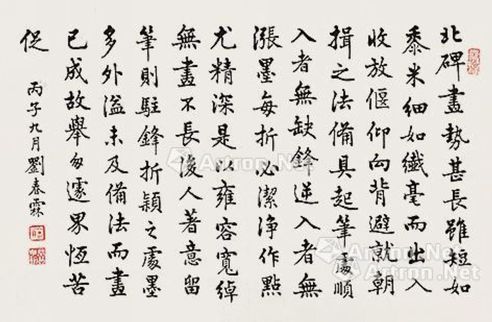 北碑畫勢甚長雖短如
黍米細如纖毫而出入
收放偃仰向背避就朝
揖之法備具起筆處順
入者無缺鋒逆入者無
漲墨每折必潔淨作點
尤精深是以雍容寬綽
無畫不長後人著意留
筆則駐鋒折穎之處墨
多外溢未及備法而畫
已成故舉匆遽界恆苦
促
丙子九月劉春霖
Artron.Net